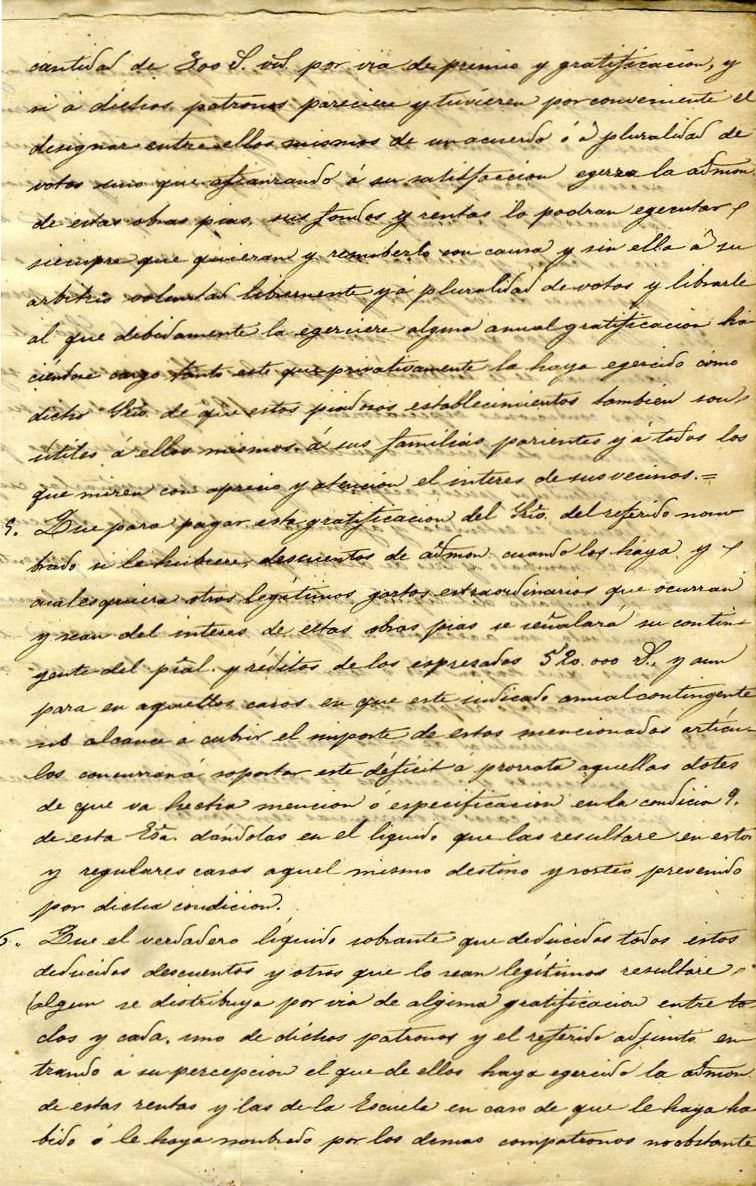 cantidad de 300 D. vn. por via de premio y gratificacion, y
si á dichos patronos pareciere y tuvieren por conveniente el
designar entre ellos mismos de un acuerdo ó á pluralidad de
votos uno que afianzando á su satisfaccion egerza la admon.
de estas obras pias, sus fondos y rentas lo podran egecutar
siempre que quieran y removerlo con causa y sin ella á su
arbitrio voluntad libremente y á pluralidad de votos y librarle
al que debidamente la egerciere alguna anual gratificacion ha
ciendose cargo tanto este que privativamente la haya egercido como
dicho Srio. de que estos piadosos establecimientos tambien son
útiles á ellos mismos, á sus familias parientes y á todos los
que miren con aprecio y atencion el interes de sus vecinos.=
5. Que para pagar esta gratificacion del Srio. del referido nom
brado si le hubiere, descuentos de admon. cuando los haya y
cualesquiera otros legítimos gastos extraordinarios que ocurran
y sean del interes de estas obras pias se señalará su contin-
gente del pral. y réditos de los espresados 520.000 D., y aun
para en aquellos casos en que este indicado anual contingente
no alcance á cubrir el importe de estos mencionados artícu-
los concurran á soportar este déficit á prorrata aquellas dotes
de que va hecha mencion o especificacion en la condicion 9.
de esta Esra. dándolas en el líquido que las resultare en estos
y regulares casos aquel mismo destino y sorteo prevenido
por dicha condicion.
6. Que el verdadero líquido sobrante que deducidos todos estos
deducidos descuentos y otros que lo sean legítimos resultare
algun se distribuya por via de alguna gratificacion entre to
dos y cada uno de dichos patronos y el referido adjunto en
trando á su percepcion el que de ellos haya egercido la admon.
de estas rentas y las de la Escuela en caso de que le haya ha
bido ó le haya nombrado por los demas compatronos no obstante